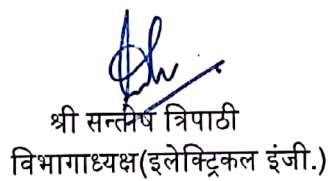 श्री सन्तोष त्रिपाठी
विभागाध्यक्ष(इलेक्ट्रिकल इंजी.)